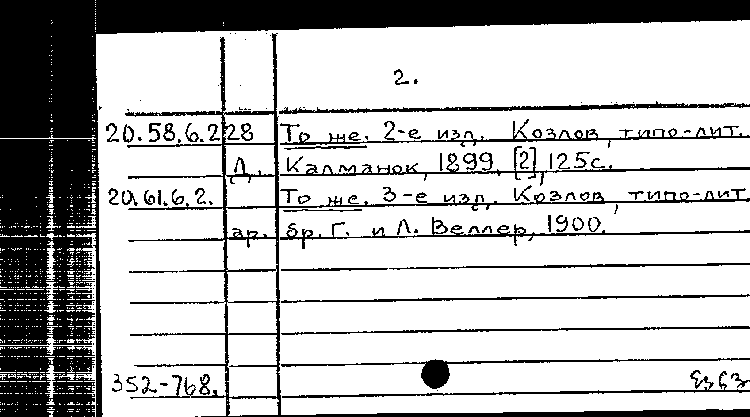 2.
20.58.6.228 То же. 2-е изд. Козлов, типо-лит.
Д. Калманок, 1899, [2], 125с.
20.61.6.2. То же. 3-е изд. Козлов, типо-лит.
ар. бр. Г. и Л. Веллер, 1900.
352-768.